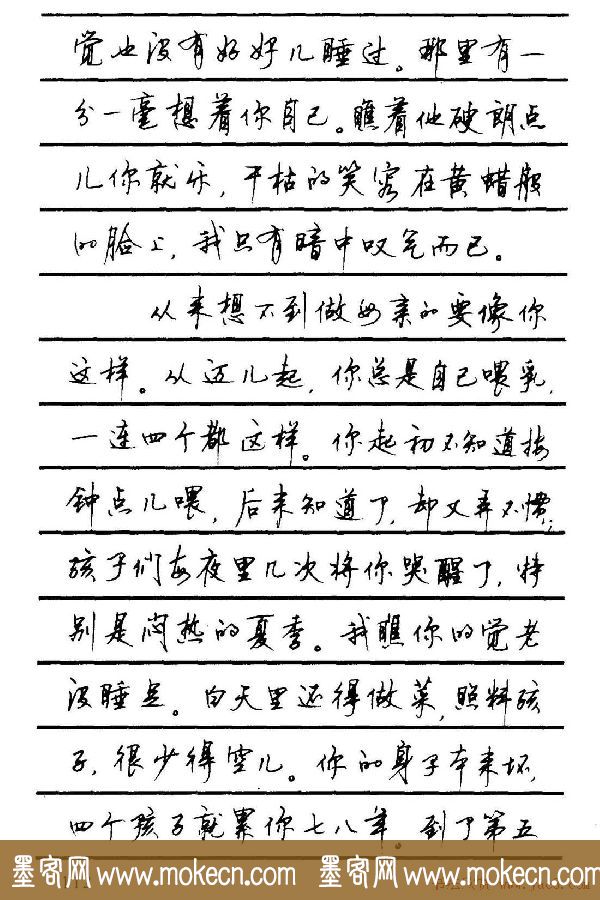 觉也没有好好儿睡过。那里有一
分一毫想着你自己。瞧着他硬朗点
儿你就乐，干枯的笑容在黄蜡般
的脸上，我只有暗中叹气而已。
从来想不到做母亲的要像你
这样。从迈儿起，你总是自己喂乳，
一连四个都这样。你起初不知道按
钟点儿喂，后来知道了，却又弄不惯；
孩子们每夜里几次将你哭醒了，特
别是闷热的夏季。我瞧你的觉老
没睡足。白天里还得做菜，照料孩
子，很少得空儿。你的身子本来坏，
四个孩子就累你七八年。到了第五
墨客网 www.mokecn.com 墨客网 www.mokecn.com